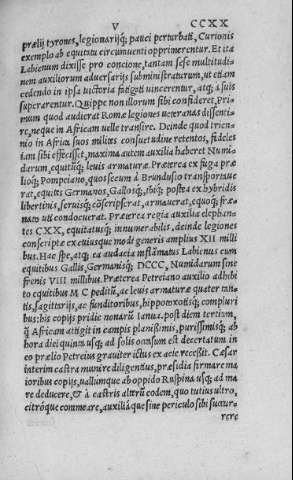 V CCXX
prælij tyrones, legionarijq; pauci perturbati, Curionis
exemplo ab equitatu circumuenti opprimerentur. Et ita
Labienum dixisse pro concione, tantam sese multitudi-
nem auxiliorum aduersarijs subministraturum, ut etiam
cedendo in ipsa uictoria fatigati uincerentur, atq; à suis
superarentur. Quippe non illorum sibi confideret, Pri-
mum quod audierat Romæ legiones ueteranas dissenti-
re, neque in Africam uelle transire. Deinde quod trien-
nio in Africa suos milites consuetudine retentos, fideles
iam sibi effecisset, maxima autem auxilia haberet Numi-
darum, equitūq; leuis armaturæ. Præterea ex fuga præ
lioq; Pompeiano, quos secum à Brundusio transportaue
rat, equites Germanos, Gallosq;, ibiq; postea ex hybridis
libertinis, seruisq; cōscripserat, armauerat, equoq; fræ
nato uti condocuerat. Præterea regia auxilia elephan-
tes CXX, equitatusq; innumerabilis, deinde legiones
conscriptæ ex cuiusque modi generis amplius XII milli
bus. Hac spe, atq; ea audacia inflāmatus Labienus cum
equitibus Gallis, Germanisq; DCCC, Numidarum sine
frenis VIII millibus. Præterea Petreiano auxilio adhibi
to equitibus M C peditū, ac leuis armaturæ quater tan-
tis, sagittarijs, ac funditoribus, hippotoxotisq; compluri
bus: his copijs pridie nonarū Ianua. post diem tertium,
q̄ Africam attigit in campis planißimis, purißimisq; ab
hora diei quinta usq; ad solis occasum est decertatum in
eo prælio Petreius grauiter ictus ex acie recessit. Cæsar
interim castra munire diligentius, præsidia firmare ma
ioribus copijs, uallumque ab oppido Ruspina usq; ad ma
re deducere, & à castris alterū eodem, quo tutius ultro,
citróque commeare, auxiliáque sine periculo sibi succur-
rere